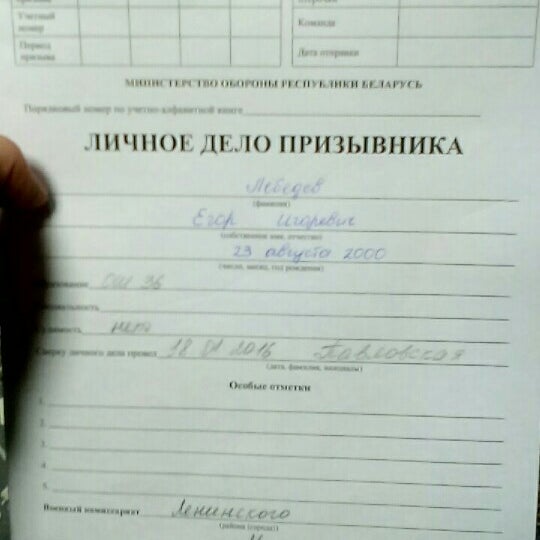 Учетный номер
Команда
Период призыва
Дата отправки
МИНИСТЕРСТВО ОБОРОНЫ РЕСПУБЛИКИ БЕЛАРУСЬ
Порядковый номер по учетно-алфавитной книге
ЛИЧНОЕ ДЕЛО ПРИЗЫВНИКА
Лебедев
(фамилия)
Егор Игоревич
(собственное имя, отчество)
23 августа 2000
(число, месяц, год рождения)
СШ 36
нет
Сверку личного дела провел 18 01 2016 Павловская
(дата, фамилия, инициалы)
Особые отметки
1.
2.
3.
4.
5.
Военный комиссариат Ленинского
(района (города))